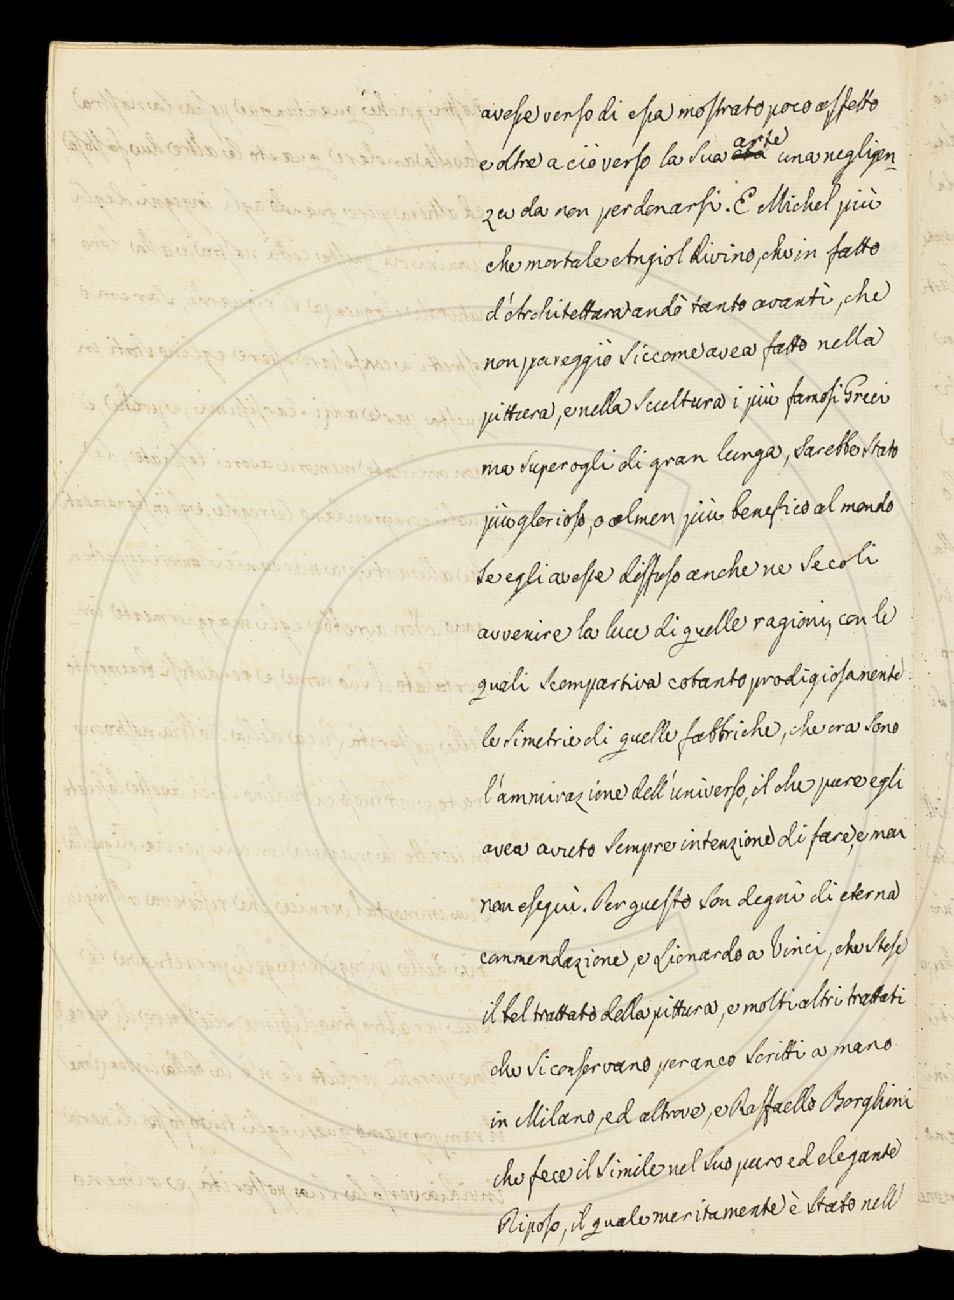 avesse verso di essa mostrato poco affetto
e oltre a ciò verso la sua arte una negligen=
za da non perdonarsi. E Michel più
che mortale Angiol divino, che in fatto
d'Architettura andò tanto avanti, che
non pareggiò siccome avea fatto nella
pittura, e nella scultura i più famosi Greci
ma superogli di gran lunga, sarebbe stato
più glorioso, o almen più benefico al mondo
se egli avesse diffuso anche ne secoli
avvenire la luce di quelle ragioni, con le
quali scompartiva cotanto prodigiosamente
le simetrie di quelle fabbriche, che ora sono
l'ammirazione dell'universo, il che pare egli
avea avuto sempre intenzione di fare, e mai
non eseguì. Per questo son degni di eterna
commendazione, e Lionardo a Vinci, che stese
il bel trattato della pittura, e molti altri trattati
che si conservano per anco scritti a mano
in Milano, ed altrove, e Raffaello Borghini
che fece il simile nel suo puro ed elegante
Riposo, il quale meritamente è stato nell'